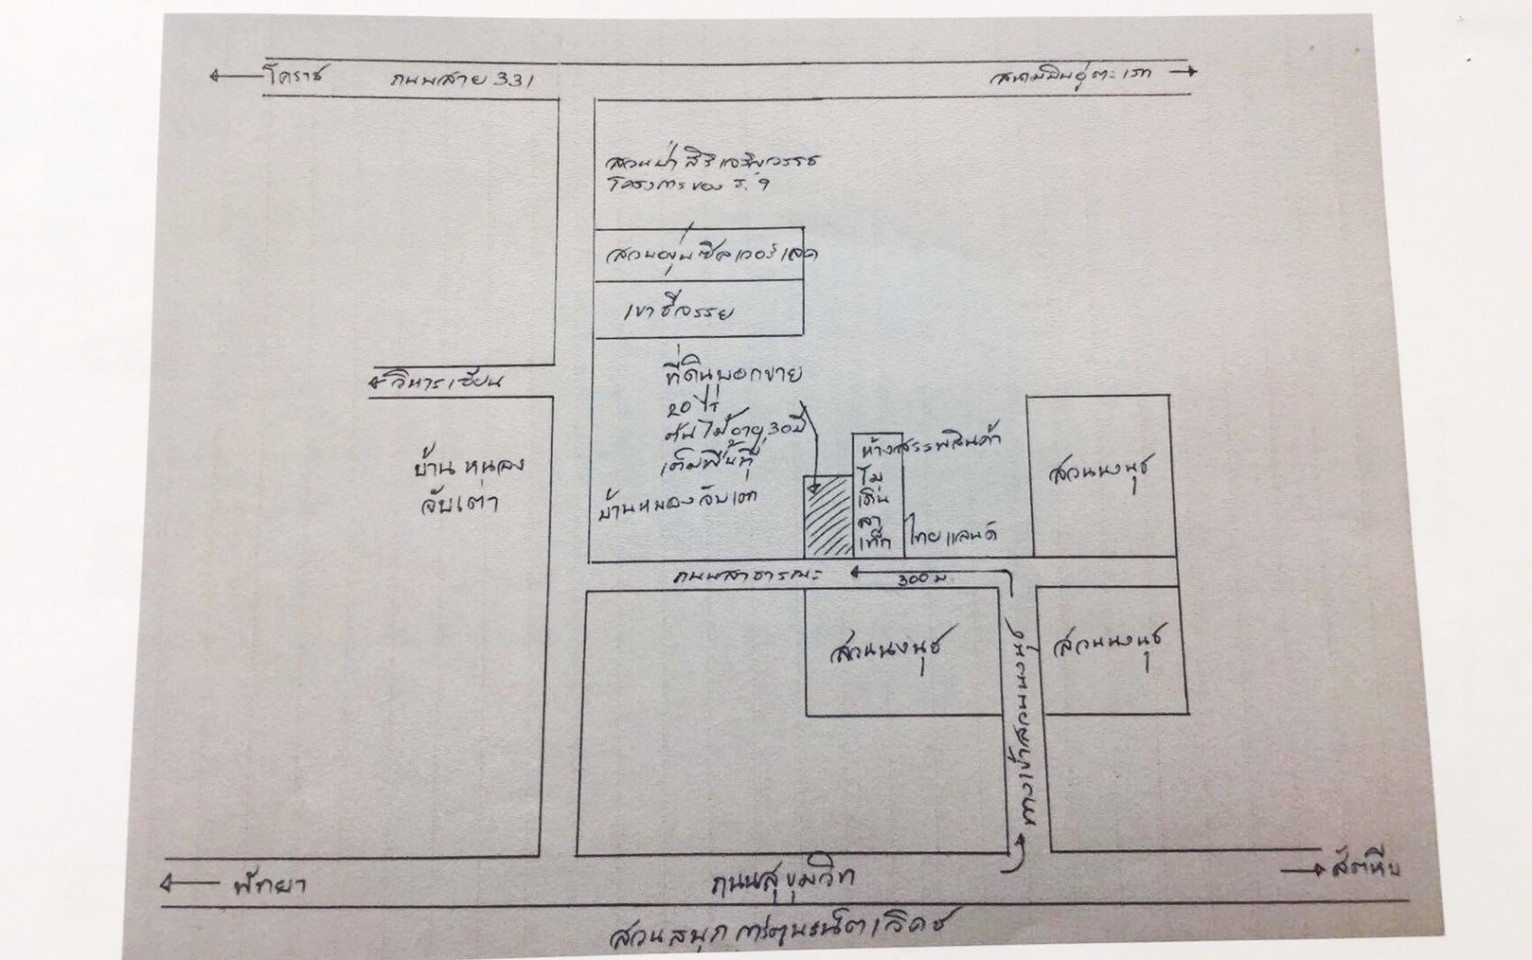 โคราช
ถนนสาย 331
สนามบินอู่ตะเภา
สวนป่าสิริเจริญวรรษ
โครงการของ ร.9
สวนองุ่นซิลเวอร์เลค
เขาชีจรรย์
วิหารเซียน
ที่ดินบอกขาย
20 ไร่
ต้นไม้อายุ 30 ปี
เต็มพื้นที่
บ้านหนองจับเต่า
บ้านหนอง
จับเต่า
ห้างสรรพสินค้า
ไม
ไทยแลนด์
สวนนงนุช
ถนนสาธารณะ
300 ม.
สวนนงนุช
สวนนงนุช
ทางเข้าสวนนงนุช
พัทยา
ถนนสุขุมวิท
สัตหีบ
สวนสนุก การ์ตูนเน็ตเวิคช